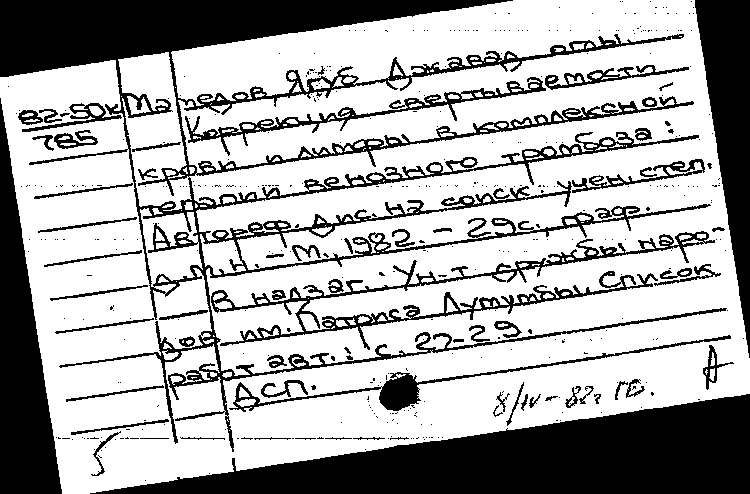 82-50к Мамедов, Ягуб Джавад оглы.
785 Коррекция свертываемости
крови и лимфы в комплексной
терапии венозного тромбоза:
Автореф. дис. на соиск. учен. степ.
д.м.н. - М., 1982. - 29с., граф.
В надзаг.: Ун-т дружбы наро-
дов им. Патриса Лумумбы. Список
работ авт.: с. 27-29.
ДСП.
8/IV-82г.